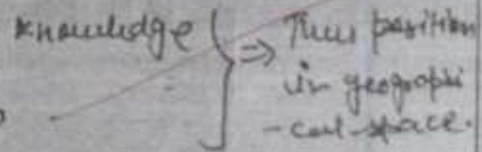 knowledge } ⇒ Their position
in geographi
-cal-space.